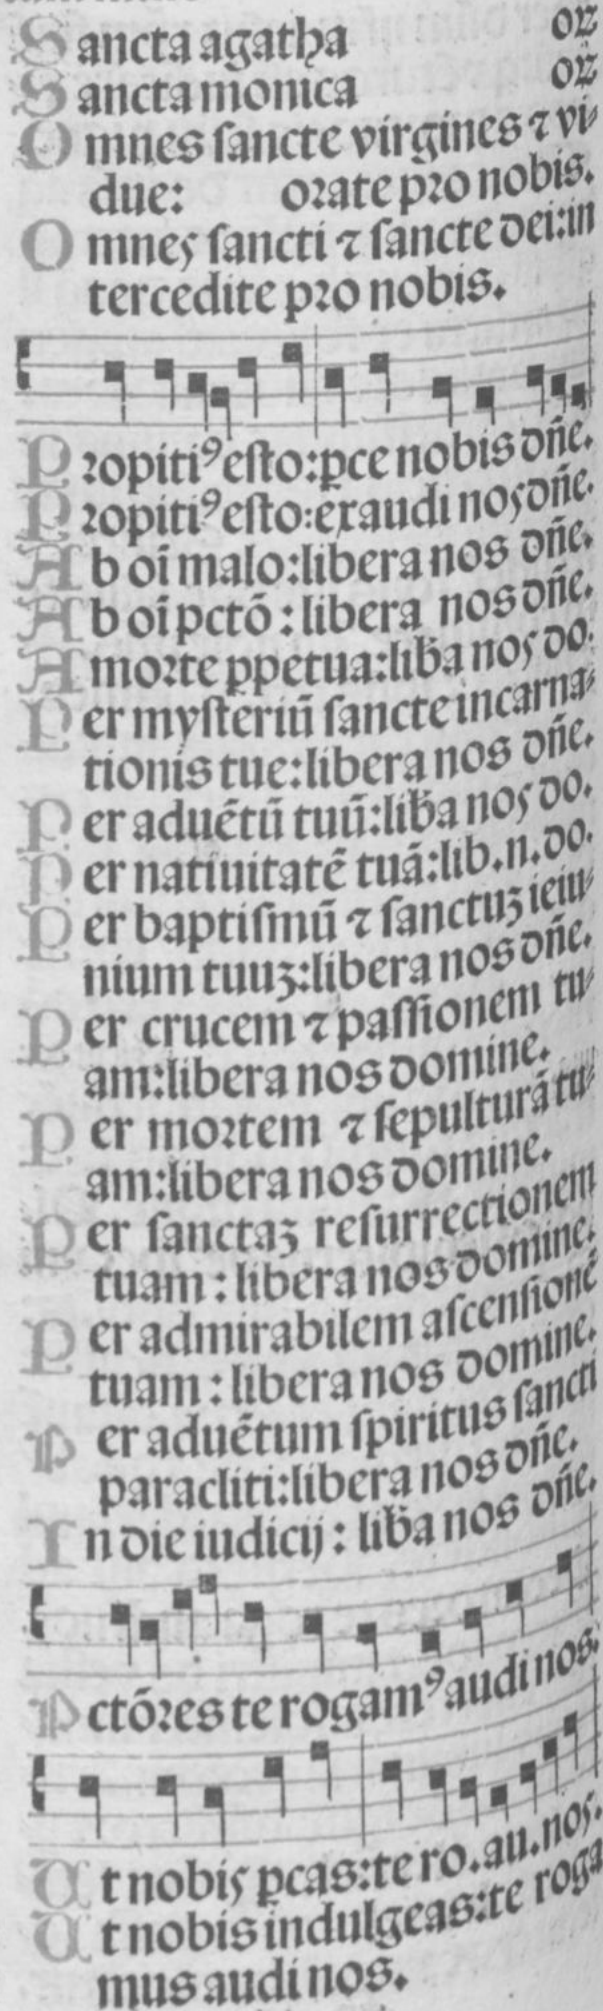 Sancta agatha oꝝ
Sancta monica oꝝ
Omnes ſancte virgines ⁊ vi-
due: orate pro nobis.
Omnes ſancti ⁊ ſancte dei:in
tercedite pro nobis.
Propitiꝰ eſto:ꝑce nobis dñe.
Propitiꝰ eſto:exaudi nos dñe.
Ab oĩ malo:libera nos dñe.
Ab oĩ pctõ : libera nos dñe.
A morte ꝑpetua:lib̃a nos do.
Per myſteriũ ſancte incarna-
tionis tue:libera nos dñe.
Per aduẽtũ tuũ:lib̃a nos do.
Per natiuitatẽ tuã:lib.n.do.
Per baptiſmũ ⁊ ſanctuꝫ ieiu-
nium tuuꝫ:libera nos dñe.
Per crucem ⁊ paſſionem tu-
am:libera nos domine.
Per mortem ⁊ ſepulturã tu-
am:libera nos domine.
Per ſanctaꝫ reſurrectionem
tuam : libera nos domine.
Per admirabilem aſcenſionẽ
tuam : libera nos domine.
Per aduẽtum ſpiritus ſancti
paracliti:libera nos dñe.
In die iudicij : lib̃a nos dñe.
Pctõres te rogamꝰ audi nos.
Ut nobis ꝑcas:te ro.au.nos.
Ut nobis indulgeas:te roga
mus audi nos.